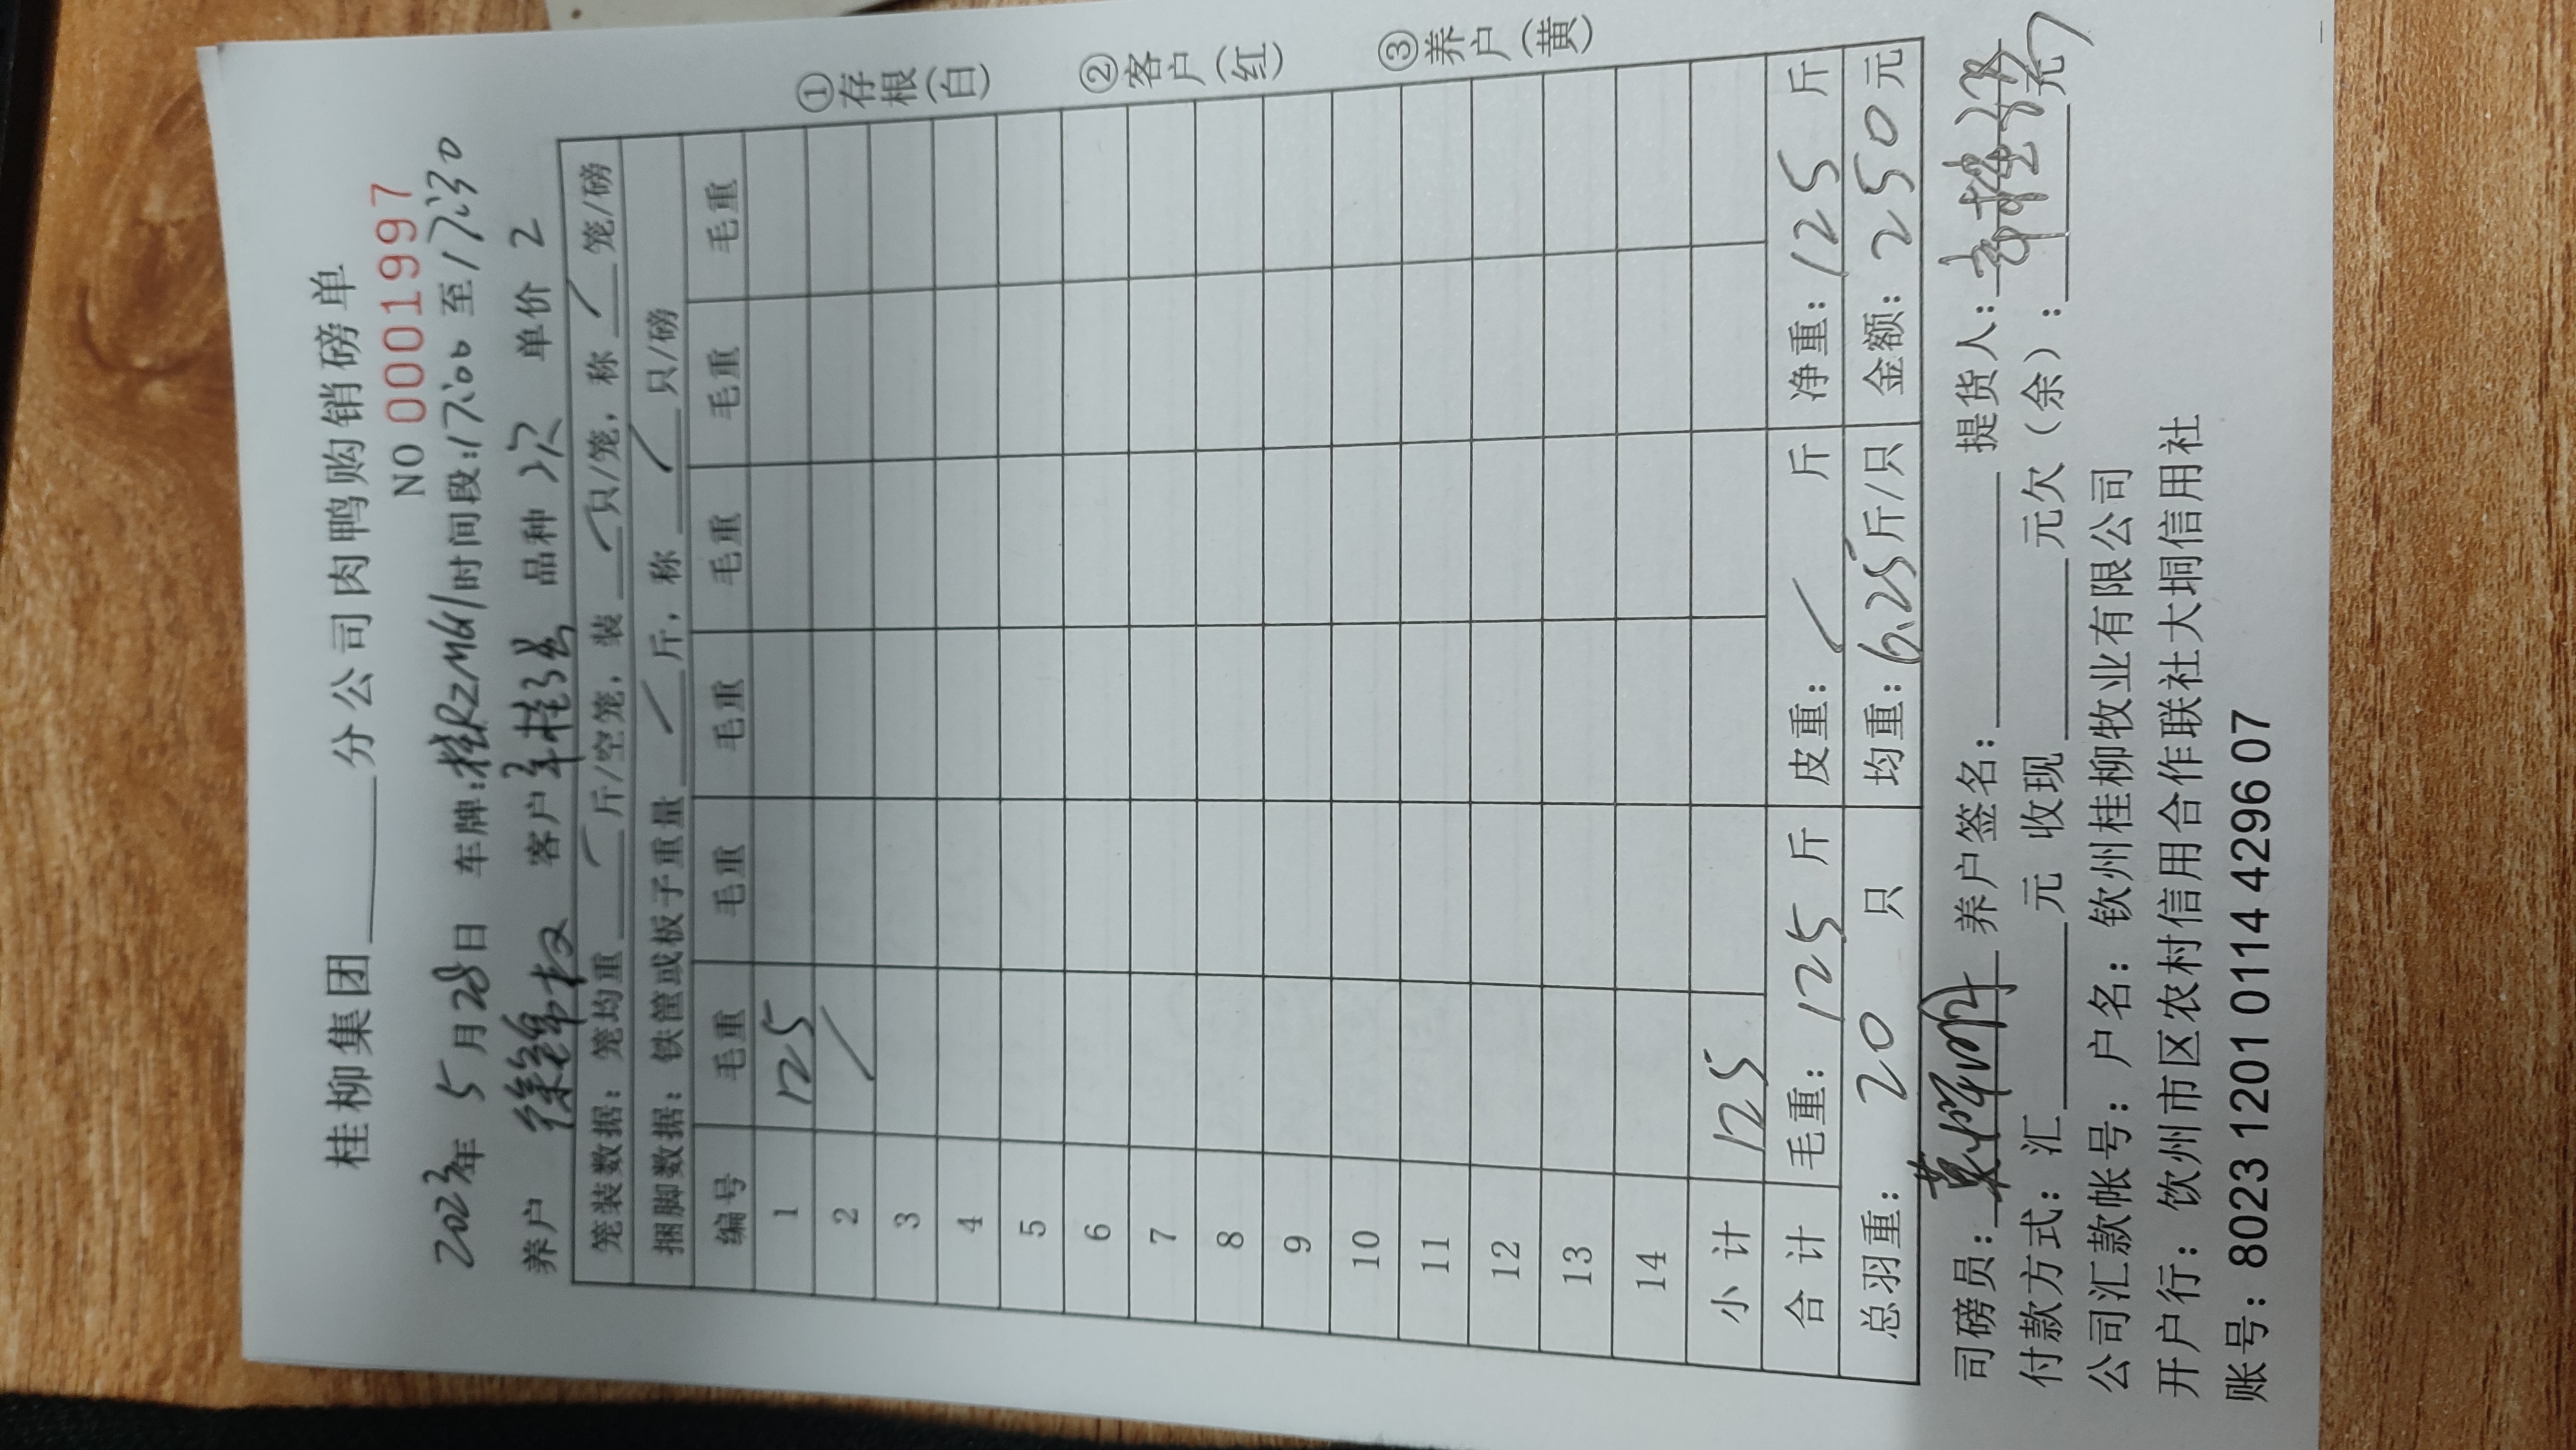 桂柳集团______分公司肉鸭购销磅单
NO 0001997
2023年 5月28日 车牌:桂RZM61 时间段:17:00 至 17:30
养户 徐锦权 客户 品种 次 单价 2
笼装数据: 笼均重 / 斤/空笼, 装 / 只/笼, 称 / 笼/磅
捆脚数据: 铁筐或板子重量 / 斤, 称 / 只/磅
编号 毛重 毛重 毛重 毛重 毛重 毛重
1 125
2 /
3
4
5
6
7
8
9
10
11
12
13
14
小 计 125
合 计 毛重: 125 斤 皮重: / 斤 净重: 125 斤
总羽重: 20 只 均重: 6.25 斤/只 金额: 250 元
司磅员: 养户签名: 提货人:
付款方式: 汇______元 收现______元欠(余):______元
公司汇款帐号: 户名: 钦州桂柳牧业有限公司
开户行: 钦州市区农村信用合作联社大垌信用社
账号: 8023 1201 0114 4296 07
①存根(白) ②客户(红) ③养户(黄)